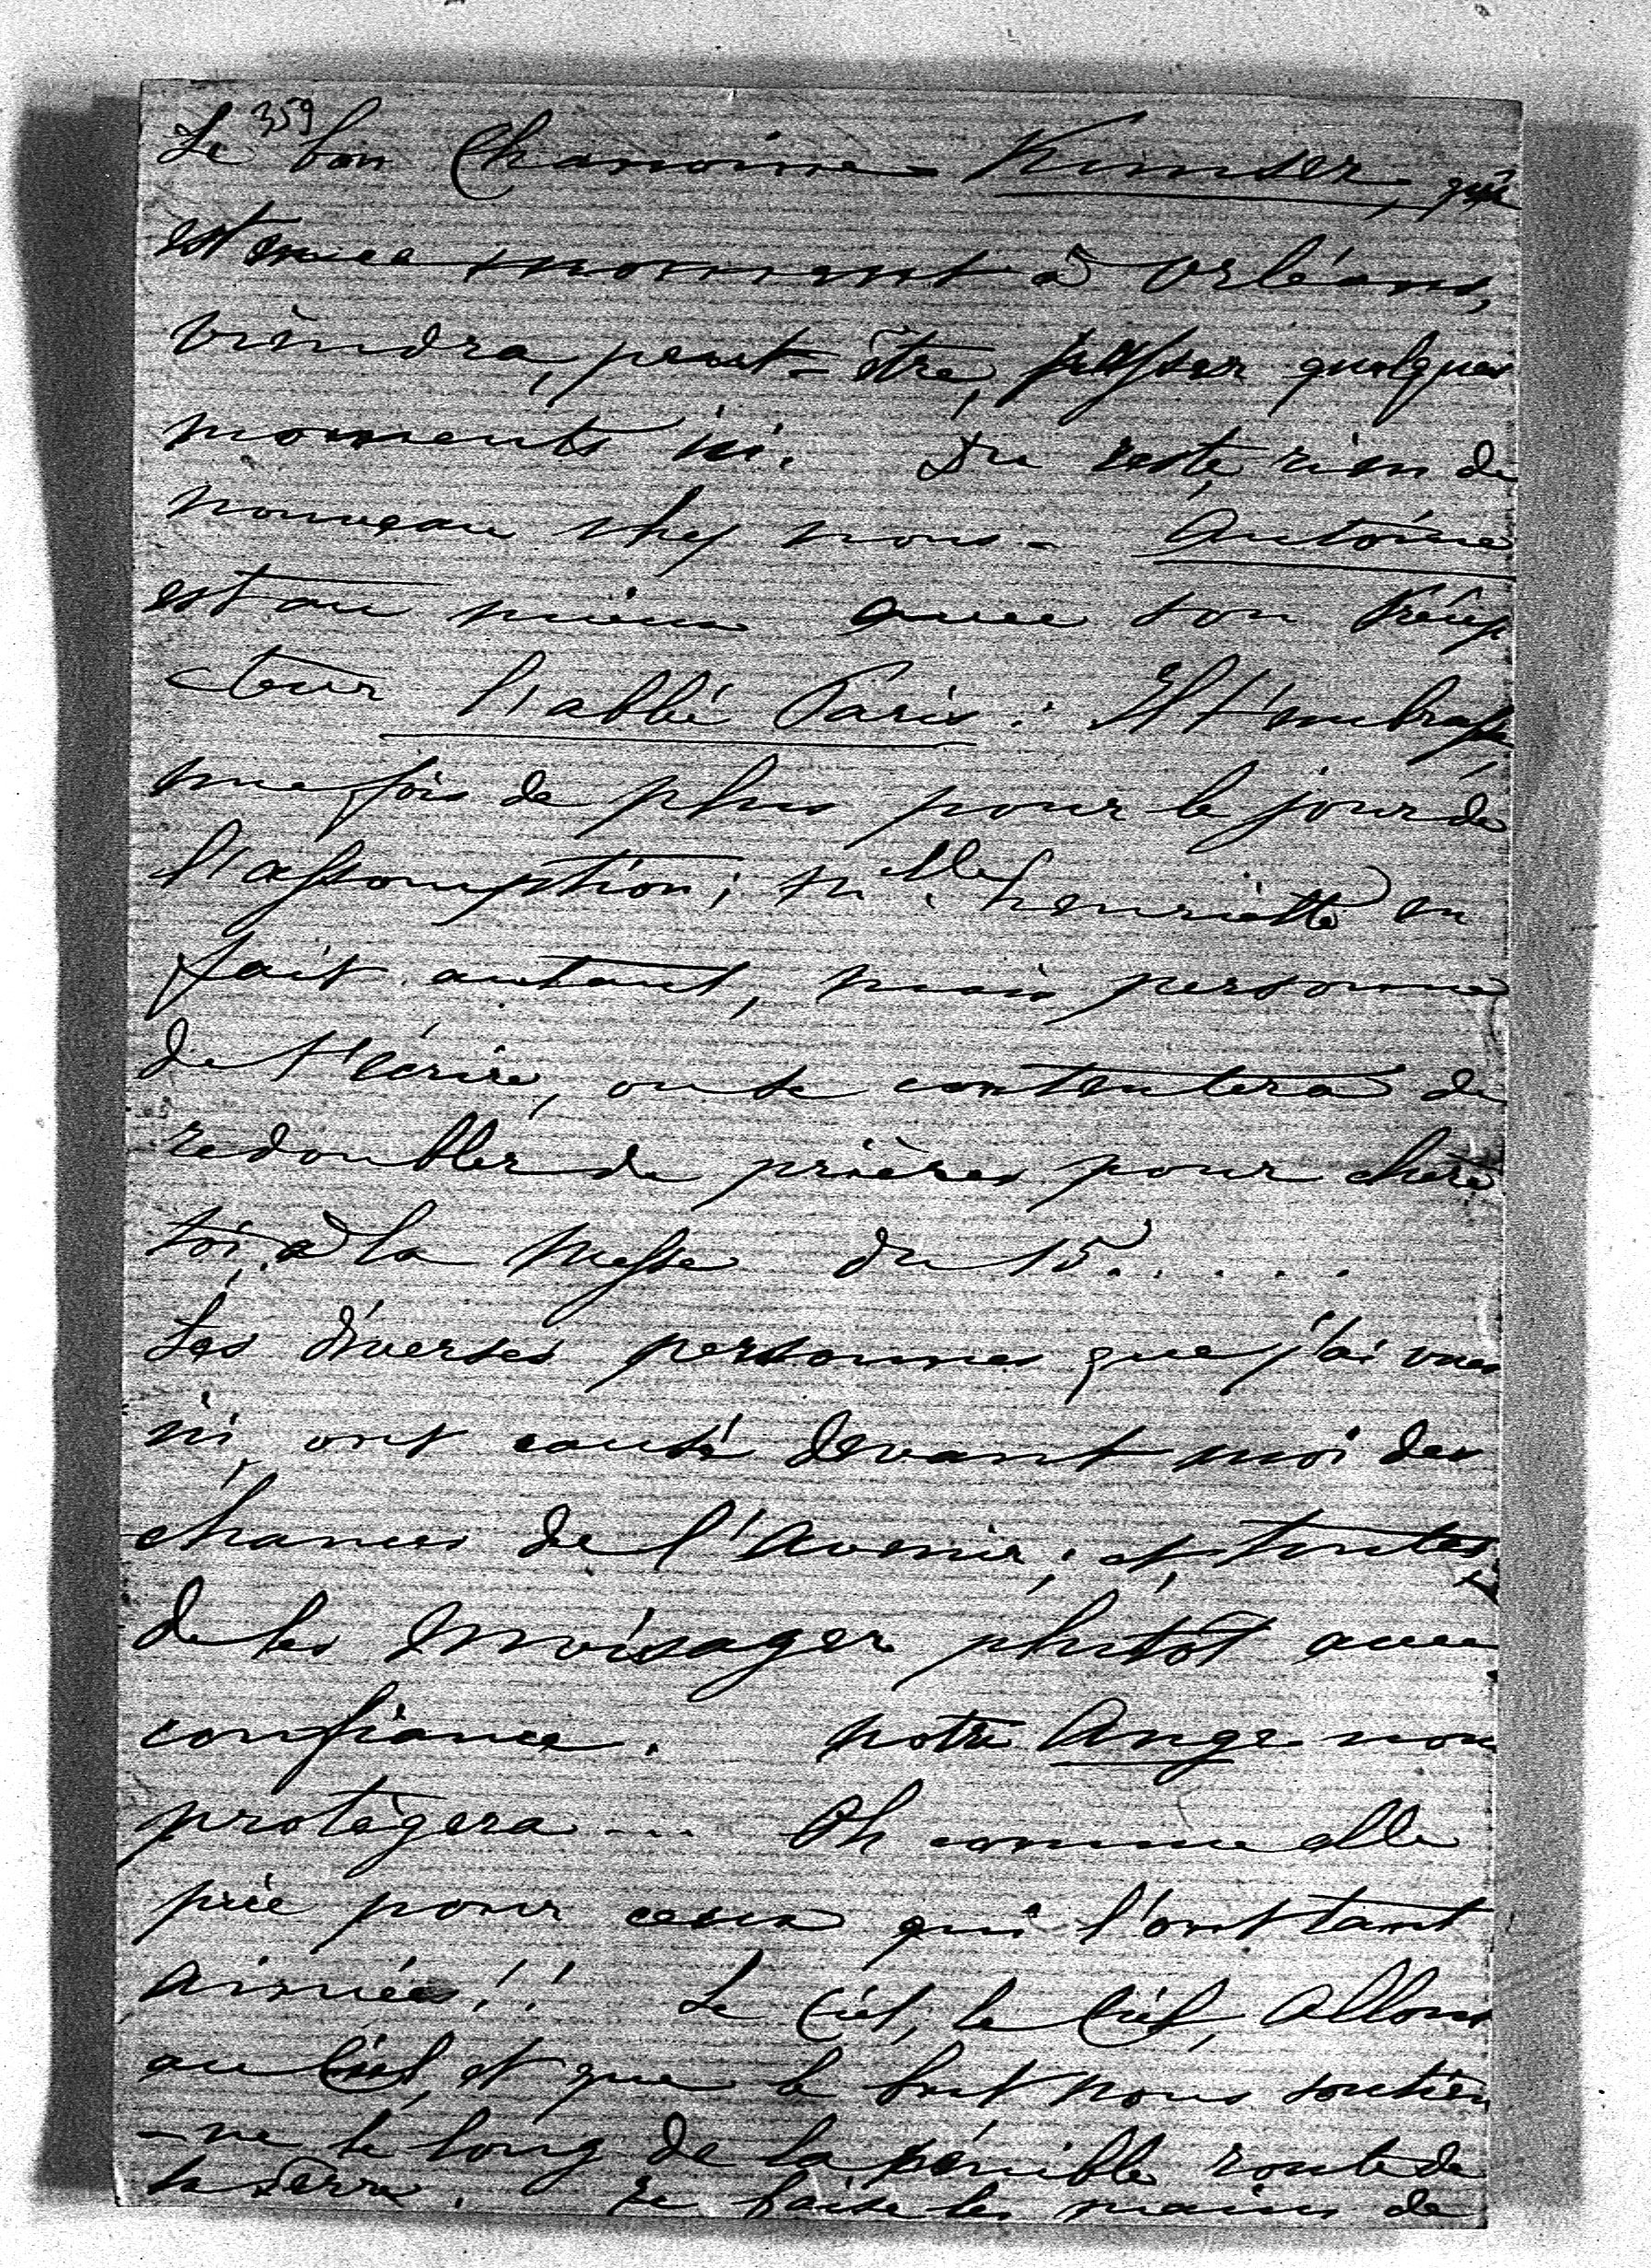 359
Le bon Chanoine Kunser, qui
est en ce moment à Orléans,
viendra, peut-être, passer quelques
moments ici. Du reste, rien de
nouveau chez nous. Antoine
est au mieux avec son Précep
cteur l'abbé Paris : Il t'embrasse,
une fois de plus pour le jour de
l'assomption ; Mlle henriette en
fait autant, mais personne
de t'écrire, on se contentera de
redoubler de prières pour chère
toi, à la Messe du 15.....
Les diverses personnes que j'ai vues
ici ont causé devant moi des
chances de l'Avenir ; et, toutes,
de les envoisager plutôt avec
confiance. Notre Ange nous
protègera... Oh comme elle
prie pour ceux qui l'ont tant
aimée ! ! Le Ciel, le Ciel, Allons
au Ciel, et que le but nous soutien
-ne le long de la pénible route de
la terre. Je baise les mains de